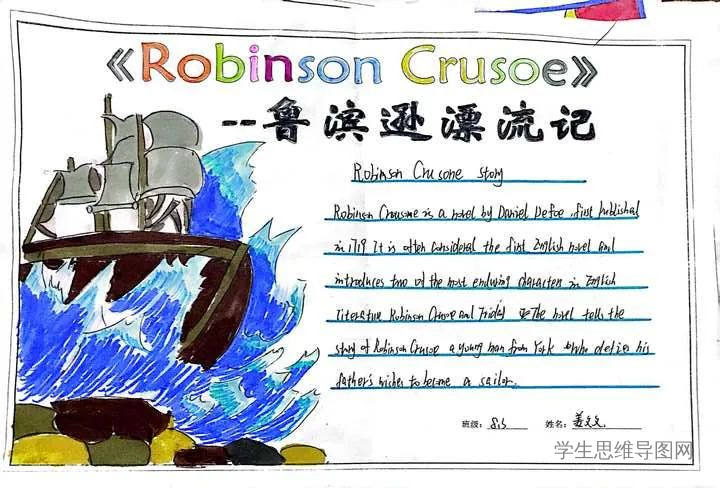 《Robinson Crusoe》
--鲁滨逊漂流记
Robinson Crusone story
Robinson Crousone is a novel by Daniel Defoe, first Published
in 1719 It is often considered the first English novel and
introduces two of the most enduring characters in English
literature Robinson Crusoe and Friday The novel tells the
story of Robinson Crusoe a young man from York who defies his
father's wishes to become a sailor.
班级: 姓名: 姜文文
学生思维导图网